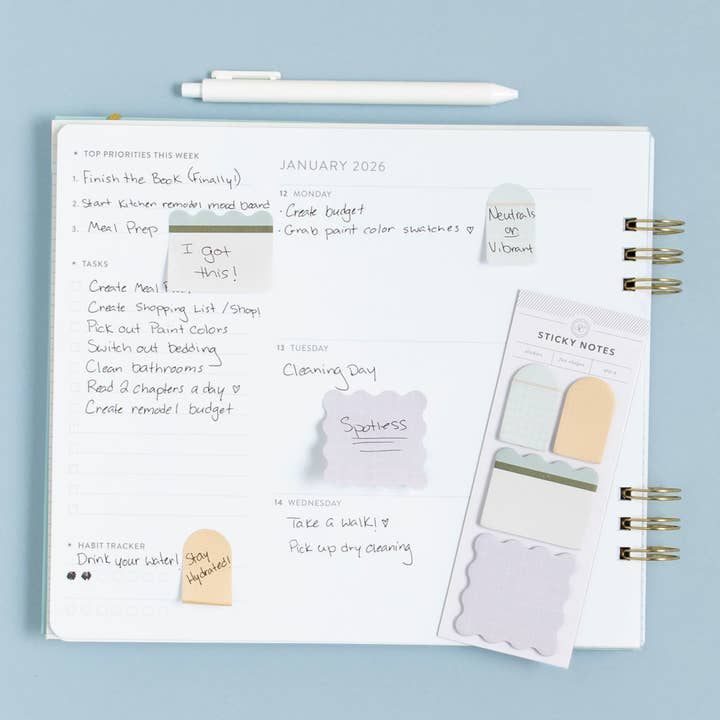 * TOP PRIORITIES THIS WEEK
1. Finish the Book (Finally!)
2. Start Kitchen remodel mood board
3. Meal Prep
I got
this!
* TASKS
Create Meal
Create Shopping List / Shop!
Pick out Paint Colors
Switch out bedding
Clean bathrooms
Read 2 chapters a day ♡
Create remodel budget
* HABIT TRACKER
Drink your water!
Stay
Hydrated!
JANUARY 2026
12 MONDAY
· Create budget
· Grab paint color swatches ♡
Neutrals
or
Vibrant
13 TUESDAY
Cleaning Day
Spotless
14 WEDNESDAY
Take a walk! ♡
Pick up dry cleaning
STICKY NOTES